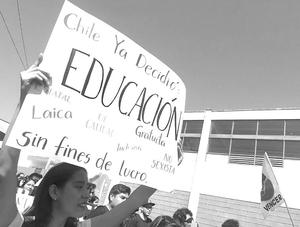 Chile Ya Decidió:
EDUCACIÓN
Laica
DE
CALIDAD
Gratuita
Inclusiva
NO
SEXISTA
Sin fines de lucro
VENCER